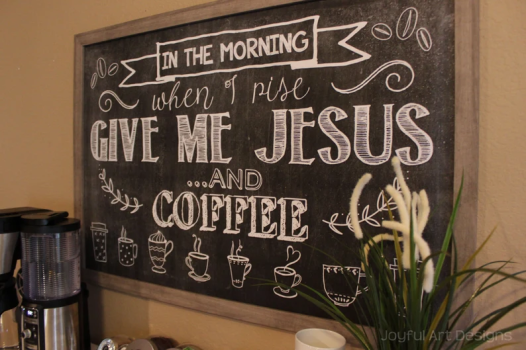 IN THE MORNING
when I rise
GIVE ME JESUS
...AND
COFFEE
Joyful Art Designs